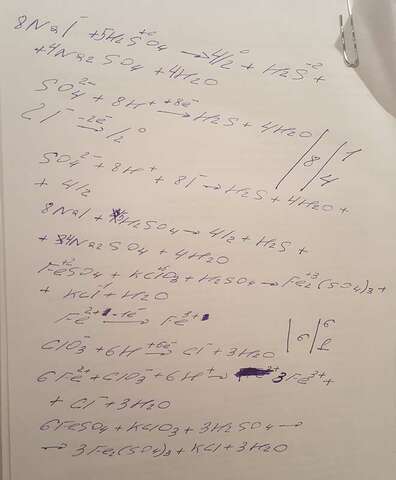 8NaI⁻ + 5H₂S⁺⁶O₄ → 4I₂⁰ + H₂S⁻² +
+ 4Na₂SO₄ + 4H₂O
SO₄²⁻ + 8H⁺ +8e⁻→ H₂S + 4H₂O | | 1
2I⁻ -2e⁻→ I₂⁰ | 8 | 4
SO₄²⁻ + 8H⁺ + 8I⁻ → H₂S + 4H₂O +
+ 4I₂
8NaI + 5H₂SO₄ → 4I₂ + H₂S +
+ 4Na₂SO₄ + 4H₂O
Fe⁺²SO₄ + KCl⁺⁵O₃ + H₂SO₄ → Fe₂⁺³(SO₄)₃ +
+ KCl⁻¹ + H₂O
Fe²⁺ -1e⁻→ Fe³⁺ | 6 | 6
ClO₃⁻ + 6H⁺ +6e⁻→ Cl⁻ + 3H₂O | | 1
6Fe²⁺ + ClO₃⁻ + 6H⁺ → 3Fe³⁺ +
+ Cl⁻ + 3H₂O
6FeSO₄ + KClO₃ + 3H₂SO₄ →
→ 3Fe₂(SO₄)₃ + KCl + 3H₂O